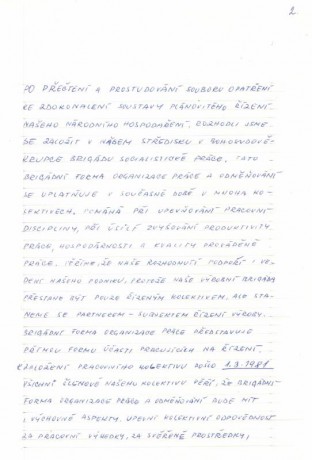 2.
PO PŘEČTENÍ A PROSTUDOVÁNÍ SOUBORU OPATŘENÍ
KE ZDOKONALENÍ SOUSTAVY PLÁNOVITÉHO ŘÍZENÍ
NAŠEHO NÁRODNÍHO HOSPODAŘENÍ, ROZHODLI JSME
SE ZALOŽIT V NAŠEM STŘEDISKU V
BRIGÁDU SOCIALISTICKÉ PRÁCE, TATO
BRIGÁDNÍ FORMA ORGANIZACE PRÁCE A ODMĚŇOVÁNÍ
SE UPLATŇUJE V SOUČASNÉ DOBĚ V MNOHA KO-
LEKTIVECH, POMÁHÁ PŘI UPEVŇOVÁNÍ PRACOVNÍ
DISCIPLINY, PŘI ÚSILÍ ZVYŠOVÁNÍ PRODUKTIVITY
PRÁCE, HOSPODÁRNOSTI A KVALITY PROVÁDĚNÉ
PRÁCE, VĚŘÍME, ŽE NAŠE ROZHODNUTÍ PODPOŘÍ I VE-
DENÍ NAŠEHO PODNIKU, PROTOŽE NAŠE VÝROBNÍ BRIGÁDA
PŘESTANE BÝT POUZE ŘÍZENÝM KOLEKTIVEM, ALE STA-
NEME SE PARTNEREM - SUBJEKTEM ŘÍZENÍ VÝROBY.
BRIGÁDNÍ FORMA ORGANIZACE PRÁCE PŘEDSTAVUJE
PŘÍMOU FORMU ÚČASTI PRACUJÍCÍCH NA ŘÍZENÍ.
K ZALOŽENÍ PRACOVNÍHO KOLEKTIVU DOŠLO 1.3.1981
VŠICHNI ČLENOVÉ NAŠEHO KOLEKTIVU VĚŘÍ, ŽE BRIGÁDNÍ
FORMA ORGANIZACE PRÁCE A ODMĚŇOVÁNÍ BUDE MÍT
I VÝCHOVNÉ ASPEKTY, UPEVNÍ KOLEKTIVNÍ ODPOVĚDNOST
ZA PRACOVNÍ VÝSLEDKY, ZA SVĚŘENÉ PROSTŘEDKY,